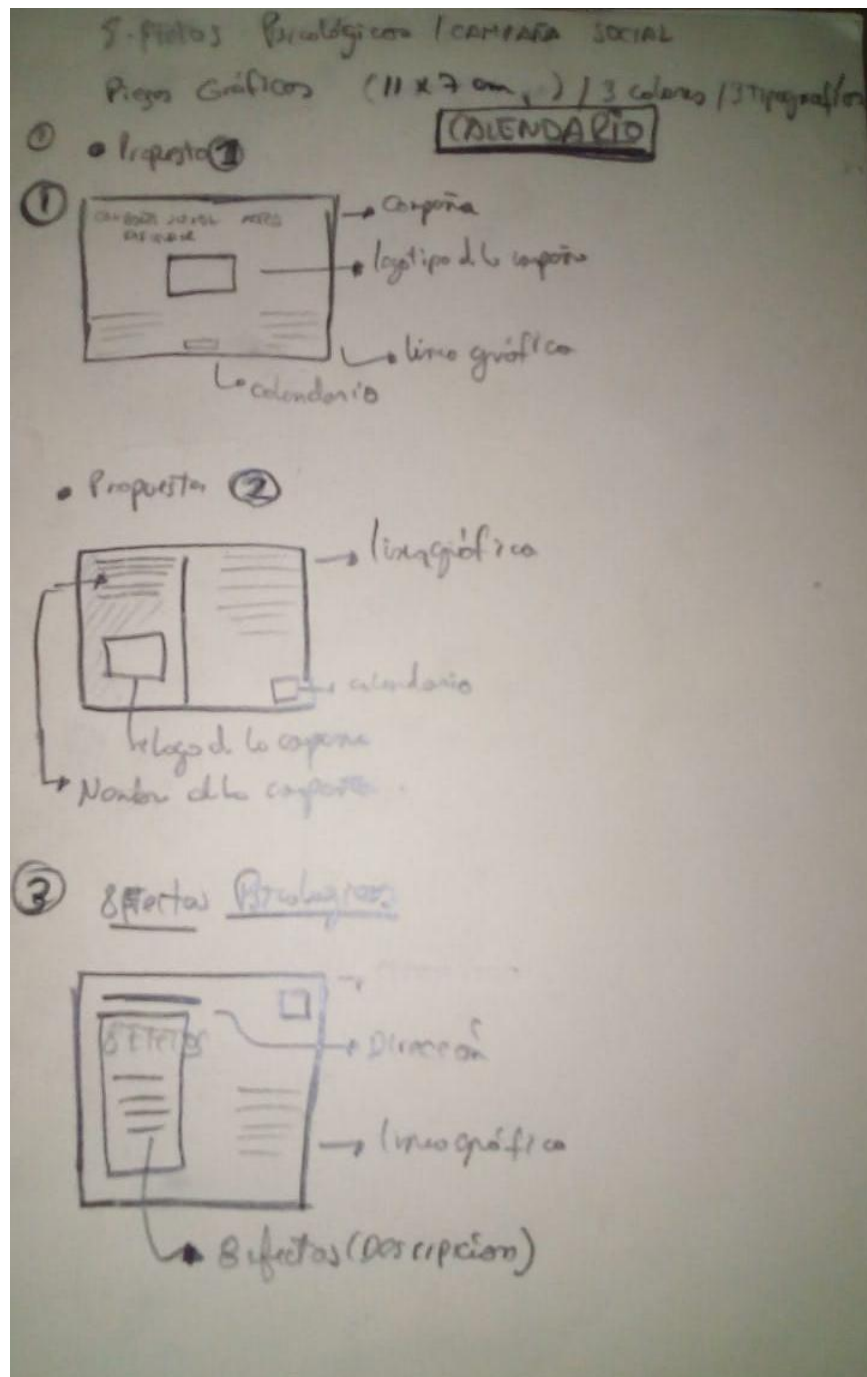 Psicológicos / CAMPAÑA SOCIAL
Piezas Gráficas (11 x 7 cm,) / 3 colores / 3 Tipografías
CALENDARIO
• Propuesta 1
1
SOCIAL
Campaña
logotipo d la campaña
linea gráfica
calendario
• Propuesta 2
linea gráfica
calendario
logo d la campaña
Nombre d la campaña
3 8 efectos Psicologicos
8 EFECTOS
Dirección
linea gráfica
8 efectos (Descripcion)